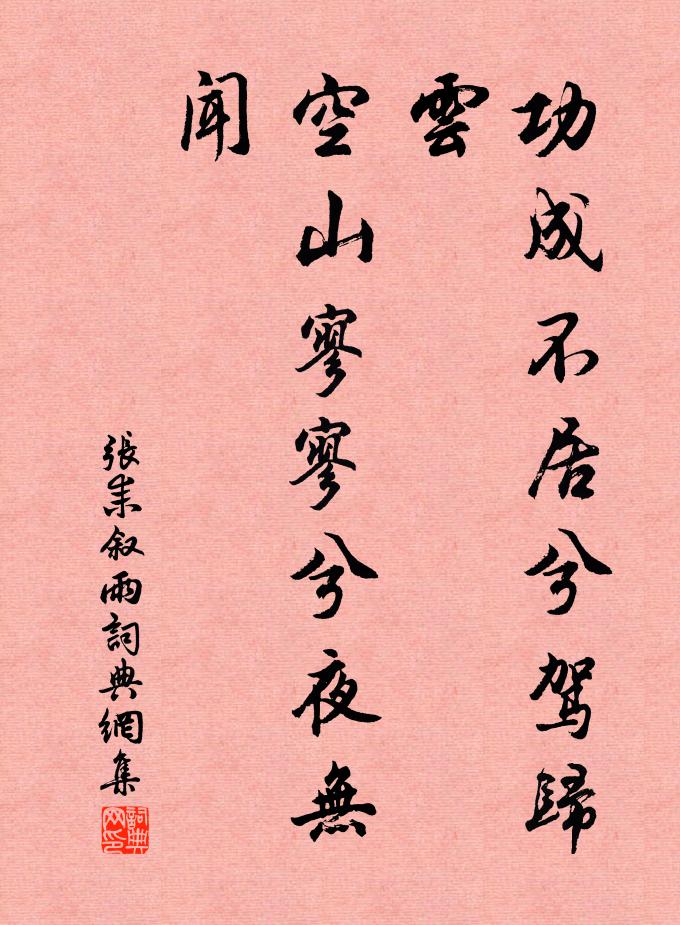 功成不居兮駕歸
雲
空山寥寥兮夜無
聞
張耒叙雨詞典網集
詞典
网印